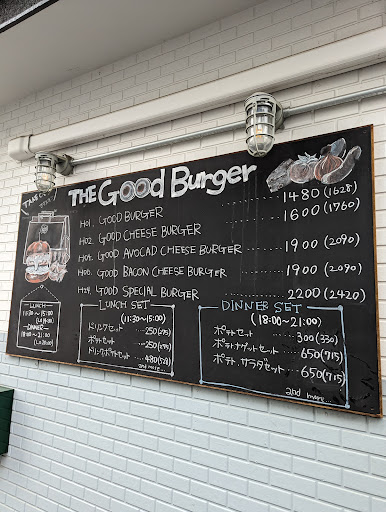 TAKE OUT
THE GOOD Burger
H01. GOOD BURGER 1480 (1628)
H02. GOOD CHEESE BURGER 1600 (1760)
GOOD AVOCAD CHEESE BURGER 1900 (2090)
GOOD BACON CHEESE BURGER 1900 (2090)
GOOD SPECIAL BURGER 2200 (2420)
LUNCH
11:30~15:00
DINNER
18:00~21:00
LUNCH SET
(11:30~15:00)
ドリンクセット 250(275)
ポテトセット 250(275)
ドリンクポテトセット 480(528)
and more...
DINNER SET
(18:00~21:00)
ポテトセット 300(330)
ポテトナゲットセット 650(715)
ポテト、サラダセット 650(715)
and more...